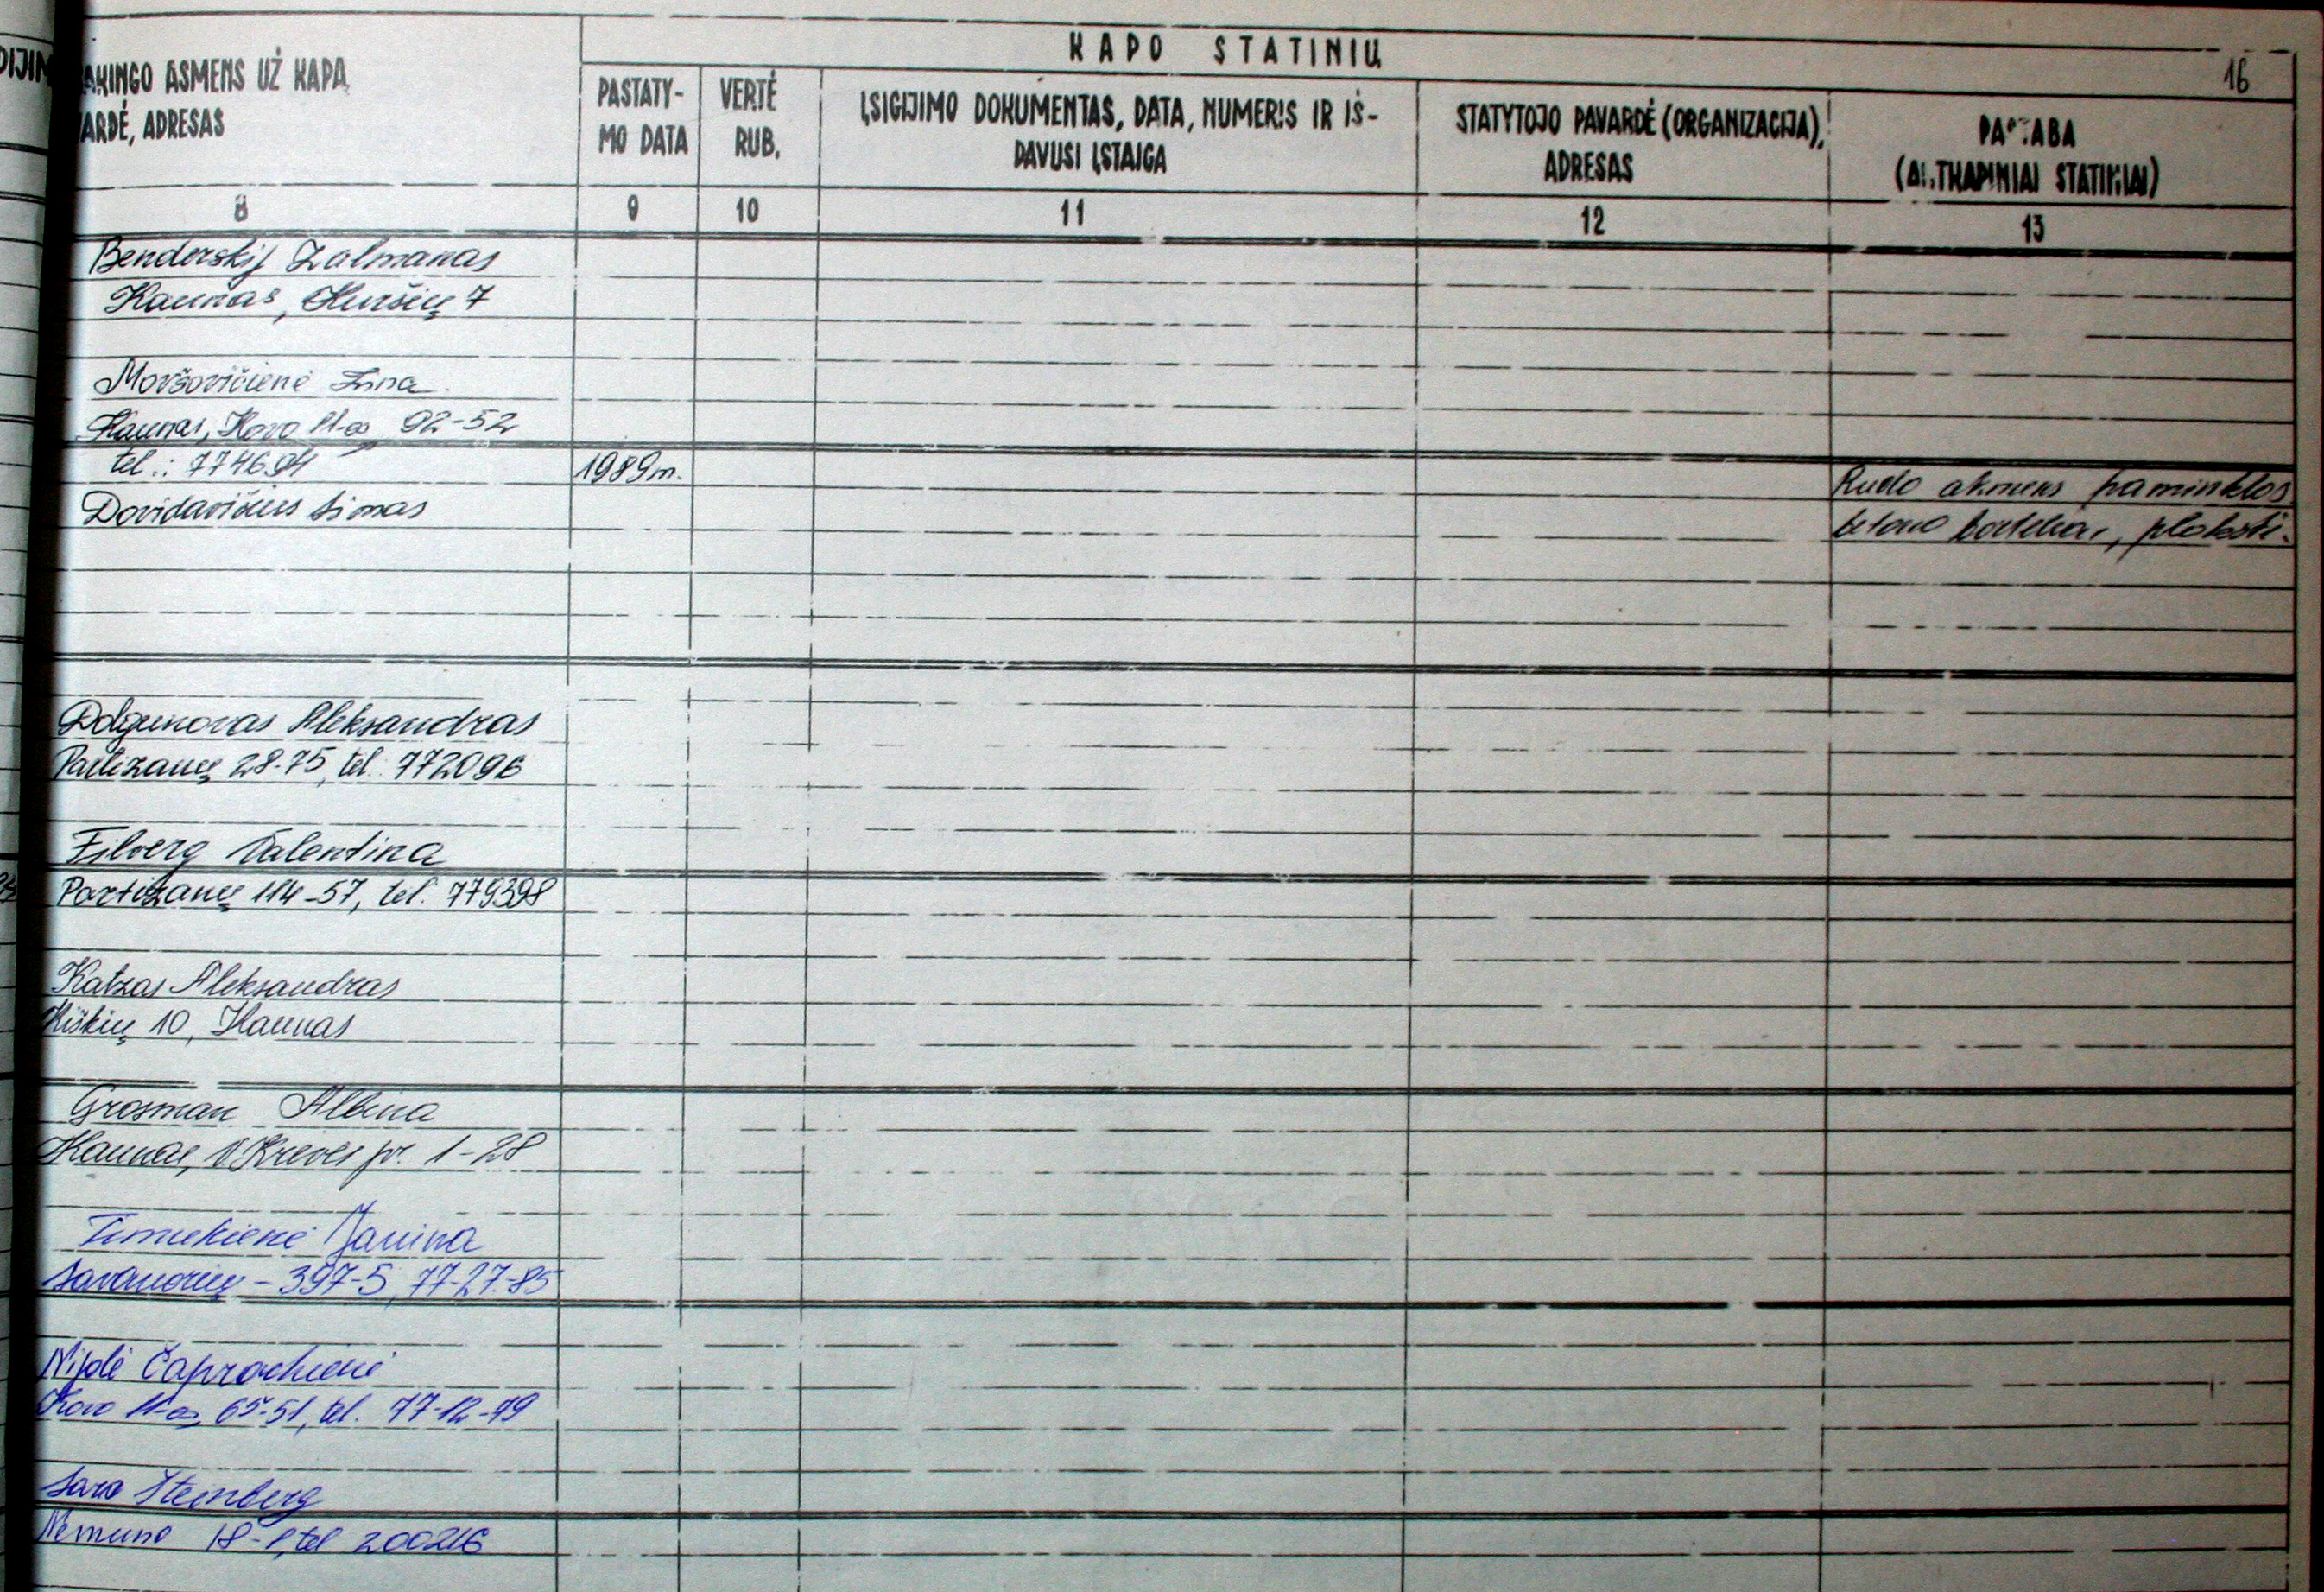 DIJIM
KAPO STATINIŲ
16
AKINGO ASMENS UŽ KAPĄ
ARDĖ, ADRESAS
PASTATY-
MO DATA
VERTĖ
RUB.
ĮSIGIJIMO DOKUMENTAS, DATA, NUMERIS IR IŠ-
DAVUSI ĮSTAIGA
STATYTOJO PAVARDĖ (ORGANIZACIJA),
ADRESAS
PASTABA
(ANTKAPINIAI STATINIAI)
8 9 10 11 12 13
Benderskij Zalmanas
Kaunas, Kuršių 7
Movšovičienė
Kaunas, Kovo 11-os 92-52
tel.: 774694 1989m. Rudo akmens paminklas
Dovidavičius Simas betono borteliai,
Dolgunovas Aleksandras
Partizanų 28-75, tel. 772096
Filverg Valentina
Partizanų 114-57, tel. 779398
Katzas Aleksandras
Kiškių 10, Kaunas
Grosman Albina
Kaunas, V. Krėvės pr. 1-28
Janina
Savanorių - 397-5, 77-27-85
Nijolė
Kovo 11-os 65-51, tel. 77-12-79
Sara Šteinberg
Nemuno 18-1, tel 200216